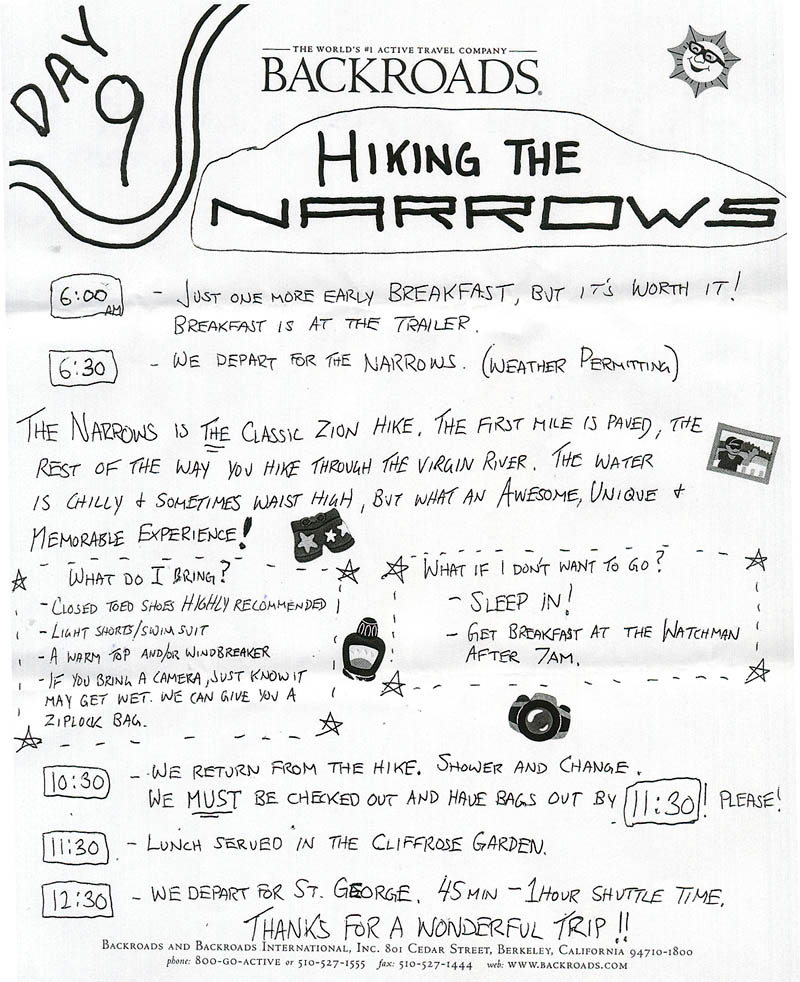 DAY 9
THE WORLD'S #1 ACTIVE TRAVEL COMPANY
BACKROADS®
HIKING THE
NARROWS
6:00 AM - JUST ONE MORE EARLY BREAKFAST, BUT IT'S WORTH IT!
BREAKFAST IS AT THE TRAILER.
6:30 - WE DEPART FOR THE NARROWS. (WEATHER PERMITTING)
THE NARROWS IS THE CLASSIC ZION HIKE. THE FIRST MILE IS PAVED, THE
REST OF THE WAY YOU HIKE THROUGH THE VIRGIN RIVER. THE WATER
IS CHILLY & SOMETIMES WAIST HIGH, BUT WHAT AN AWESOME, UNIQUE &
MEMORABLE EXPERIENCE!
WHAT DO I BRING?
- CLOSED TOED SHOES HIGHLY RECOMMENDED
- LIGHT SHORTS/SWIM SUIT
- A WARM TOP AND/OR WINDBREAKER
- IF YOU BRING A CAMERA, JUST KNOW IT
MAY GET WET. WE CAN GIVE YOU A
ZIPLOCK BAG.
WHAT IF I DON'T WANT TO GO?
- SLEEP IN!
- GET BREAKFAST AT THE WATCHMAN
AFTER 7AM.
10:30 - WE RETURN FROM THE HIKE. SHOWER AND CHANGE.
WE MUST BE CHECKED OUT AND HAVE BAGS OUT BY 11:30! PLEASE!
11:30 - LUNCH SERVED IN THE CLIFFROSE GARDEN.
12:30 - WE DEPART FOR ST. GEORGE. 45 MIN - 1 HOUR SHUTTLE TIME.
THANKS FOR A WONDERFUL TRIP!!
BACKROADS AND BACKROADS INTERNATIONAL, INC. 801 CEDAR STREET, BERKELEY, CALIFORNIA 94710-1800
phone: 800-GO-ACTIVE or 510-527-1555 fax: 510-527-1444 web: WWW.BACKROADS.COM